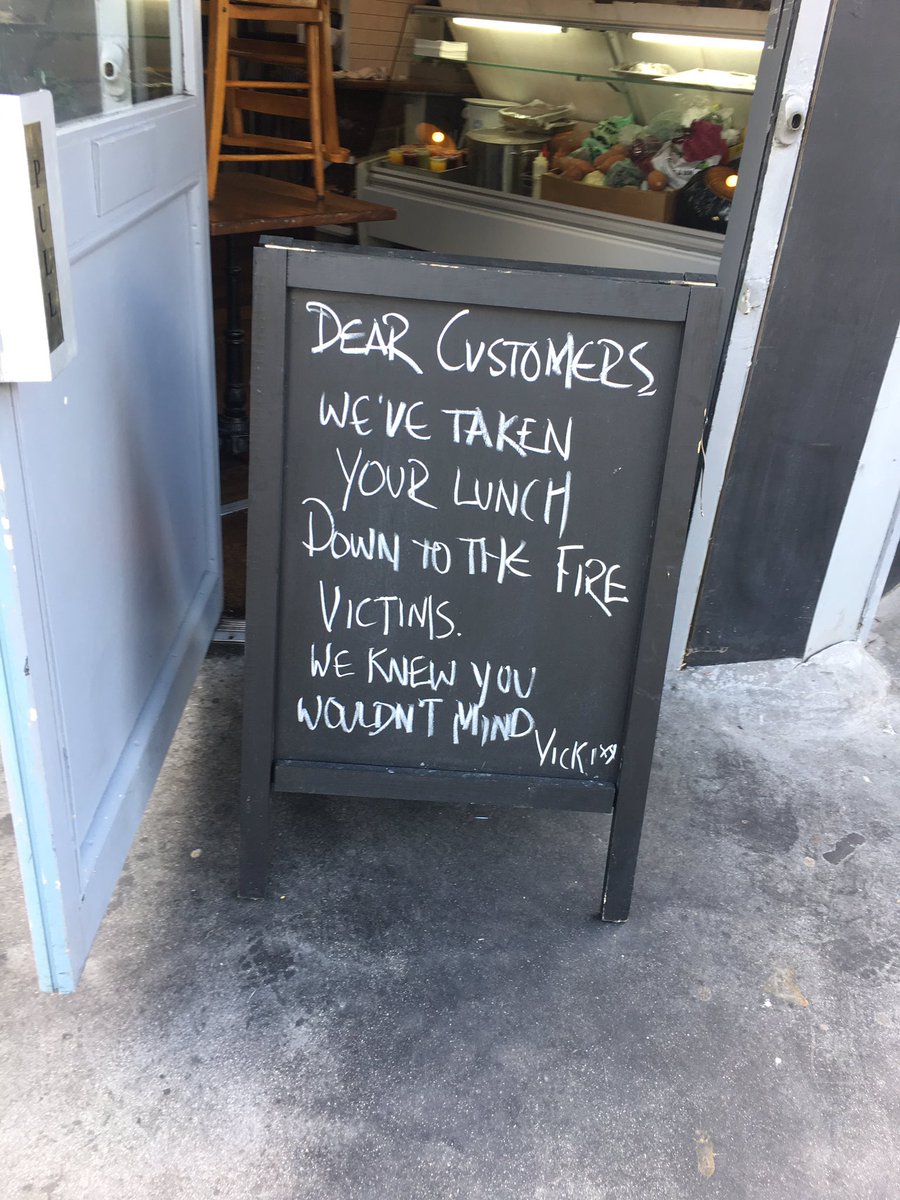 PULL
DEAR CUSTOMERS,
WE'VE TAKEN
YOUR LUNCH
DOWN TO THE FIRE
VICTIMS.
WE KNEW YOU
WOULDN'T MIND
VICKI xx